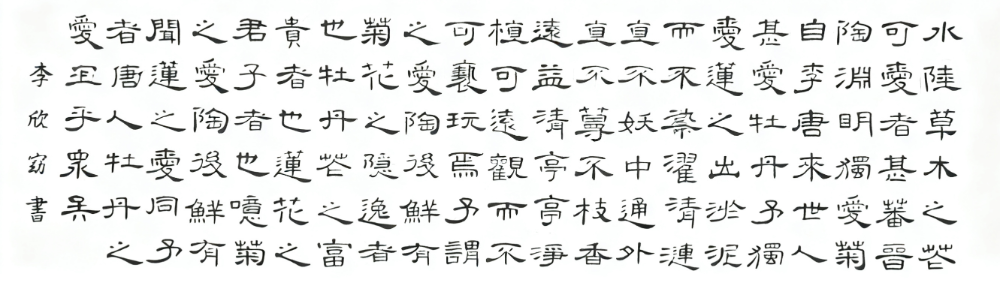 水陸草木之芲
可愛者甚蕃晉
陶淵明獨愛菊
自李唐來世人
甚愛牡丹予獨
愛蓮之出淤泥
而不染濯清漣
直不妖中通外
直不蔓不枝香
遠益清亭亭淨
植可遠觀而不
可褻玩焉予謂
之愛陶後鮮有
菊花之隱逸者
也牡丹芲之富
貴者也蓮花之
君子者也噫菊
之愛陶後鮮有
聞蓮之愛同予
者唐人牡丹之
愛宜乎眾矣
李欣窈書